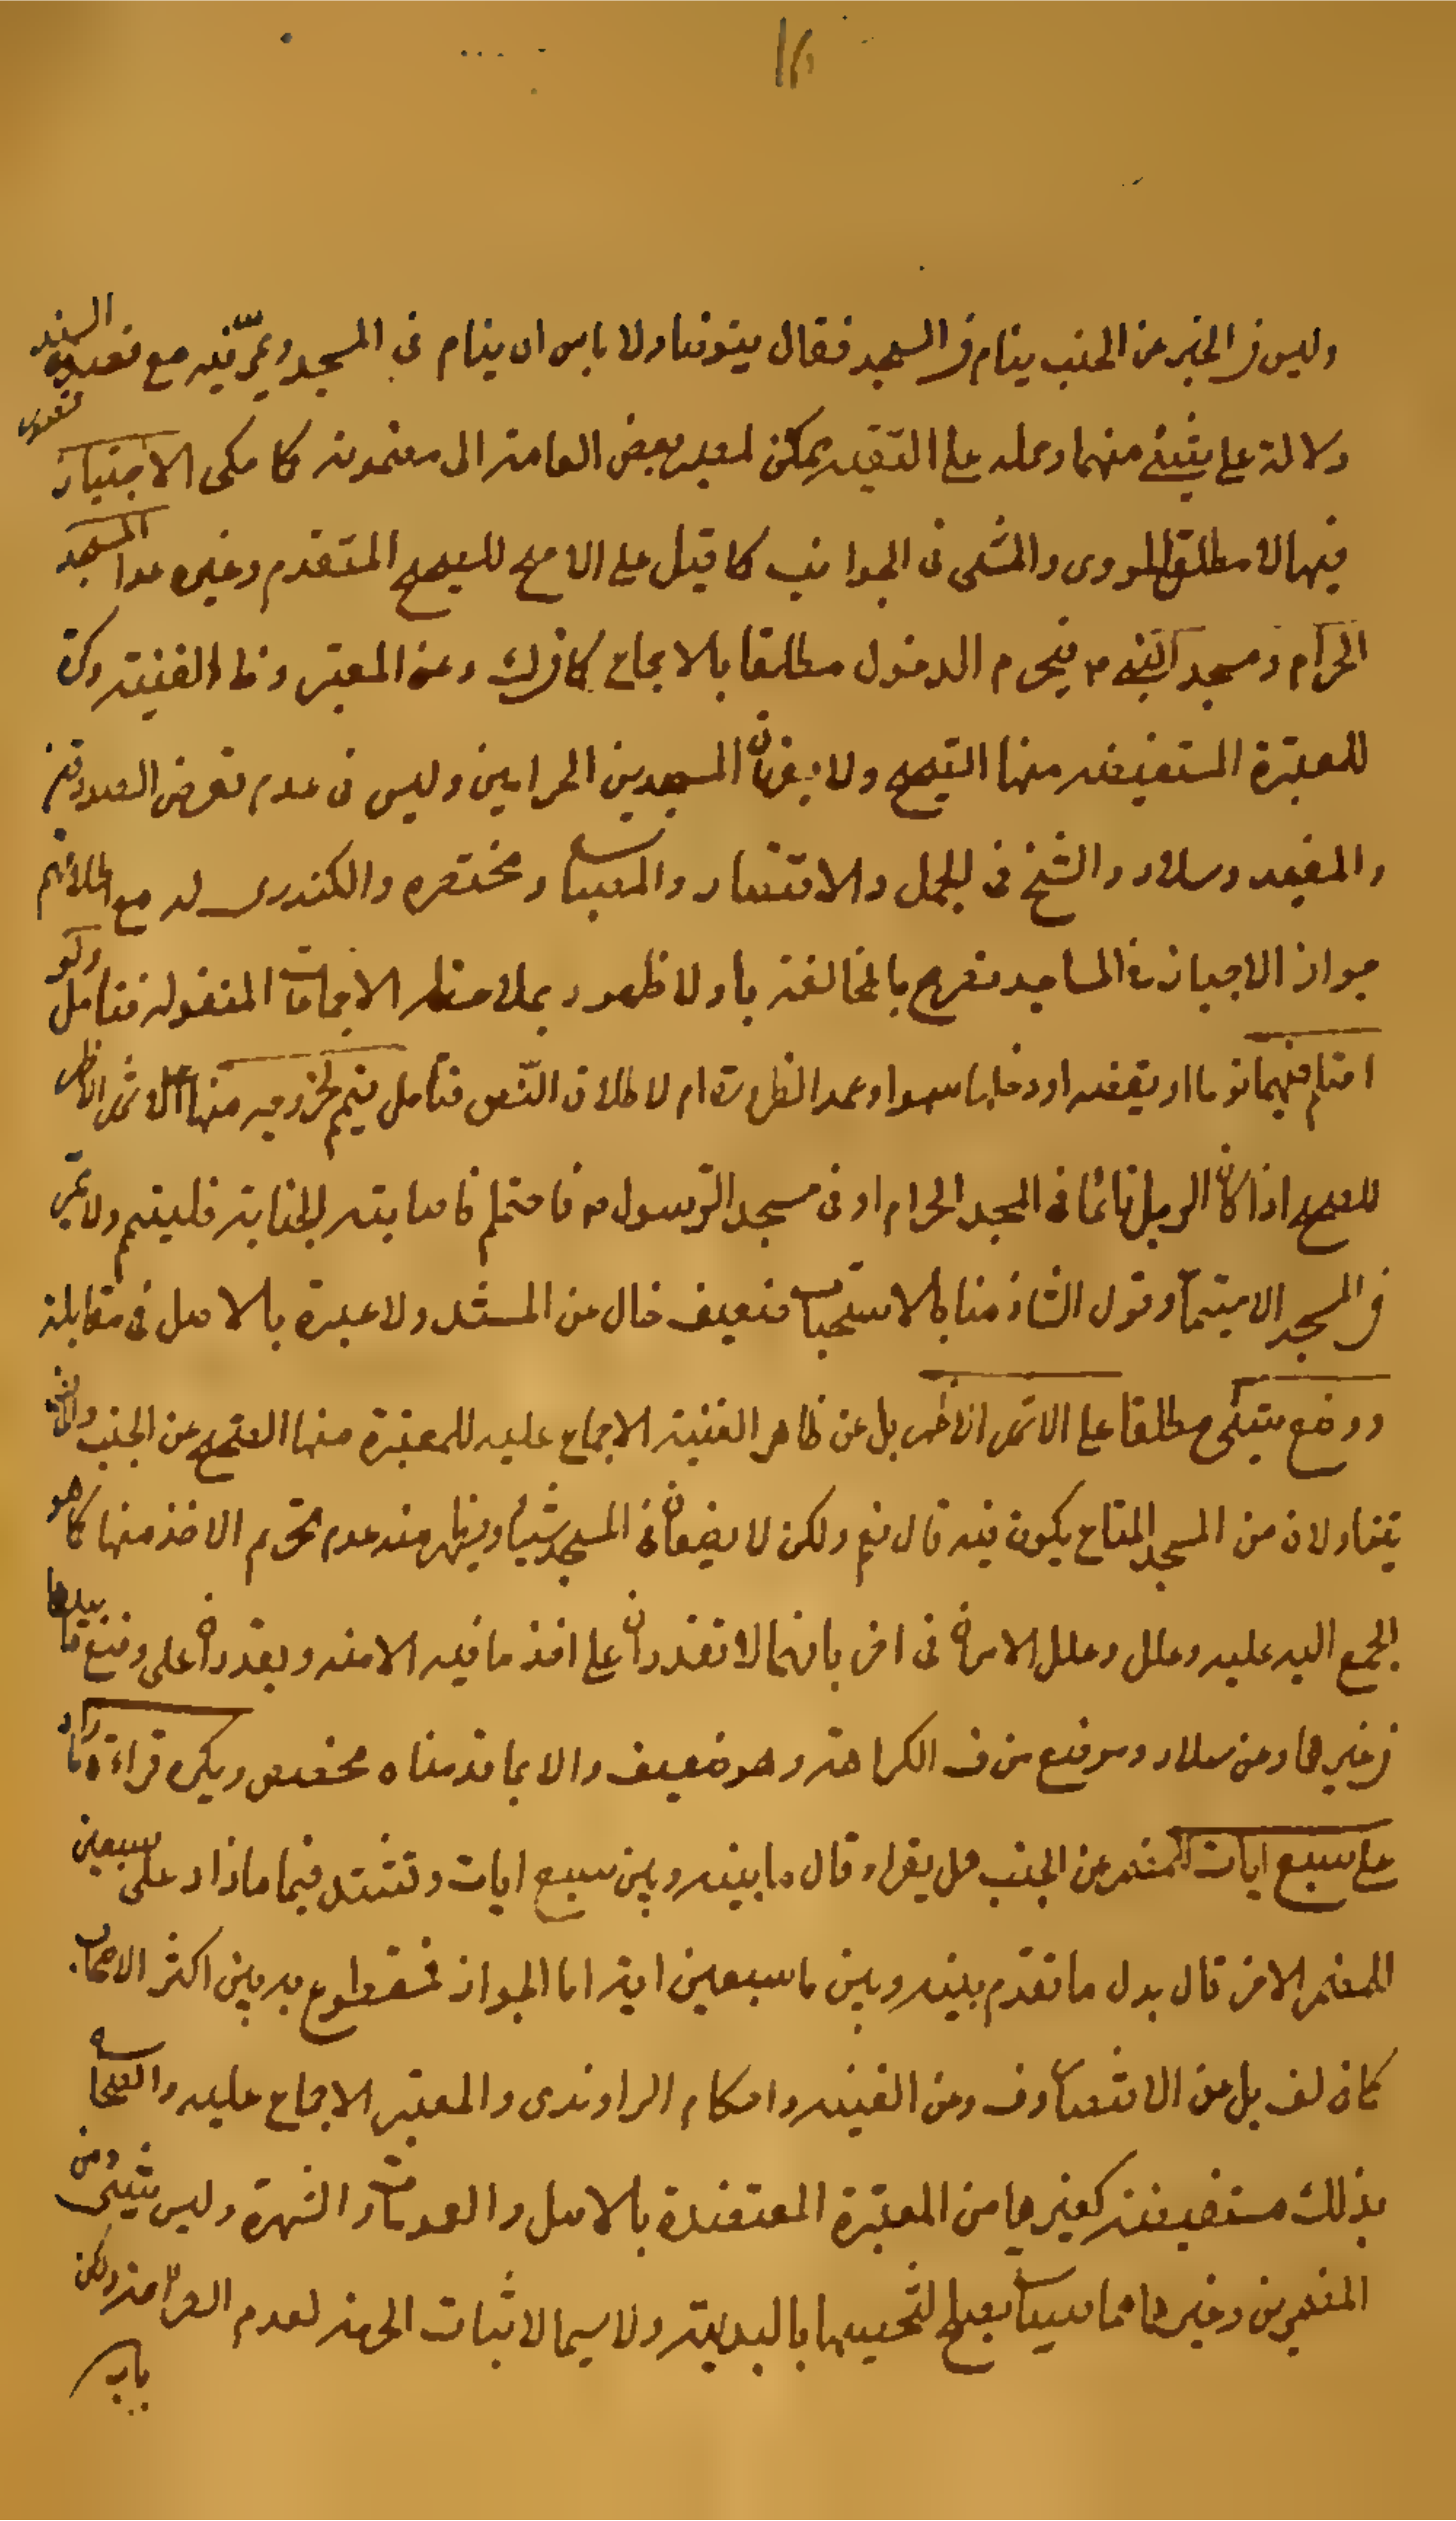 وليس في الخبر عن الجنب ينام في المسجد فقال يتوضأ ولا باس ان ينام في المسجد ويمر فيه مع السند
دلالة على شيء منهما وحمله على التقية ممكن لمصير بعض العامة الى مضمونه كما حكى الا اجتيازا
فيها لا مطلق المرور والمشي في الجوانب كما قيل على الاصح للصحيح المتقدم وغيره عدا المسجد
الحرام ومسجد النبي ص فيحرم الدخول مطلقا بالاجماع كما في ك وعن المعتبر وظ الغنية وكرة
للمعتبرة المستفيضة منها الصحيح ولا يقربان المسجدين الحرامين وليس في عدم تعرض الصدوقين
والمفيد وسلار والشيخ في الجمل والاقتصار والمصباح ومختصره والكندري له مع اطلاقهم
جواز الاجتياز في المساجد تصريح بالمخالفة بل ولا ظهور بملاحظة الاجماعات المنقولة فتامل ولو
احتلم فيهما نوما او يقظة او دخلهما سهوا او عمدا لاطلاق النص فتامل تيمم لخروجه منها على الاشهر الاظهر
للصحيح اذا كان الرجل نائما في المسجد الحرام او في مسجد الرسول ص فاحتلم فاصابته الجنابة فليتيمم ولا يمر
في المسجد الا متيمما وقول الشاذ منا بالاستحباب ضعيف خال عن المستند ولا عبرة بالاصل في مقابلة
ووضع شيء مطلقا على الاشهر الاظهر بل عن ظاهر الغنية الاجماع عليه للمعتبرة منها الصحيح عن الجنب والحائض
يتناولان من المسجد المتاع يكون فيه قال نعم ولكن لا يضعان في المسجد شيئا ويظهر منه عدم تحريم الاخذ منها كما هو
المجمع اليه عليه وعلل الامران في اخر بانهما لا تقدران على اخذ ما فيه الا منه ويقدران على وضع ما بيدهما
في غيرها وعن سلار وموضع من ف الكراهة وهو ضعيف والا بما قدمناه مخصص ويكره قراءة ما زاد
على سبع ايات للمضمر عن الجنب هل يقرأ قال ما بينه وبين سبع ايات وتشتد فيما زاد على سبعين
للمضمر الاخر قال بدل ما تقدم بينه وبين ما سبعين اية اما الجواز فمقطوع به بين اكثر الاصحاب
كما في لف بل عن الانتصار وف وعن الغنية واحكام الراوندي والمعتبر الاجماع عليه والصحاح
بذلك مستفيضة كغيرها من المعتبرة المعتضدة بالاصل والعمومات والشهرة وليس شيء من
المضمرين وغيرهما مما سيأتي يصلح لتخصيصها بالبديهة ولا سيما لاثبات الحرمة لعدم الصراحة ولكن
ياب